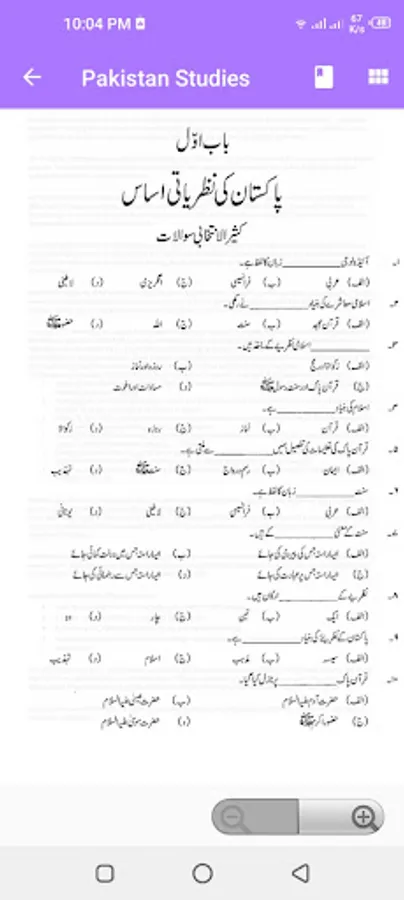 10:04 PM
67 K/s
48
Pakistan Studies
باب اوّل
پاکستان کی نظریاتی اساس
کثیرالانتخابی سوالات
۱۔ آئیڈیالوجی ________ زبان کا لفظ ہے۔
(الف) عربی (ب) فرانسیسی (ج) انگریزی (د) لاطینی
۲۔ اسلامی معاشرے کی بنیاد ________ نے رکھی۔
(الف) قرآن مجید (ب) سنت (ج) اللہ (د) حضورﷺ
۳۔ ________ اسلامی نظریے کے ماخذ ہیں۔
(الف) زکوٰۃ اور حج (ب) روزہ اور نماز
(ج) قرآن پاک اور سنت رسولﷺ (د) مساوات اور اخوت
۴۔ اسلام کی بنیاد ________ ہے۔
(الف) قرآن (ب) نماز (ج) روزہ (د) زکوٰۃ
۵۔ قرآن پاک کی تعلیمات کی تفصیل ہمیں ________ سے ملتی ہے۔
(الف) ایمان (ب) رسم و رواج (ج) سنتﷺ (د) تہذیب
۶۔ سنت ________ زبان کا لفظ ہے۔
(الف) عربی (ب) فرانسیسی (ج) لاطینی (د) یونانی
۷۔ سنت کے معنی ________ کے ہیں۔
(الف) ایسا راستہ جس کی پیروی کی جائے (ب) ایسا راستہ جس میں دولت کمائی جائے
(ج) ایسا راستہ جس پر عبادت کی جائے (د) ایسا راستہ جس سے رہنمائی کی جائے
۸۔ نظریے کے ________ ارکان ہیں۔
(الف) ایک (ب) تین (ج) چار (د) دو
۹۔ پاکستان کے نظریئے کی بنیاد ________ ہے۔
(الف) (ب) مذہب (ج) اسلام (د) تہذیب
۱۰۔ قرآن پاک ________ پر نازل کیا گیا۔
(الف) حضرت آدم علیہ السلام (ب) حضرت عیسیٰ علیہ السلام
(ج) حضور اکرمﷺ (د) حضرت موسیٰ علیہ السلام